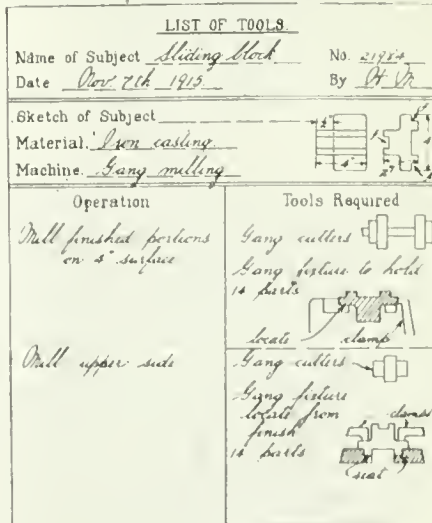 LIST OF TOOLS.
Name of Subject Sliding block No. 21984
Date Nov 7th 1915 By H M
Sketch of Subject
Material. Iron casting
Machine. Gang milling
4"
2"
Operation Tools Required
Mill finished portions
on 4" surface
Gang cutters
Gang fixture to hold
14 parts
locate clamp
Mill upper side
Gang cutters
Gang fixture
locate from
finish
clamps
14 parts
seat